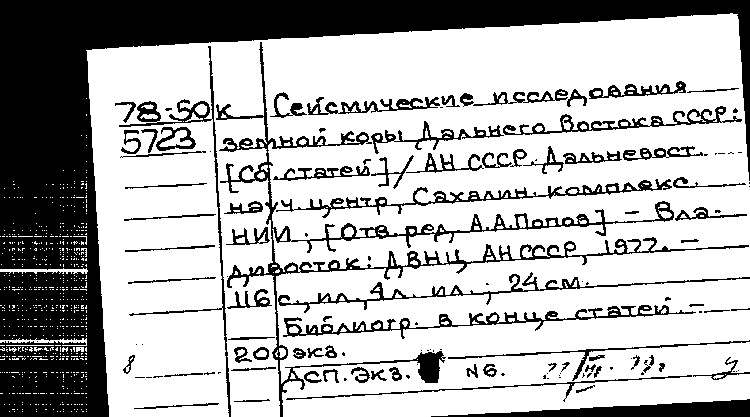 78-50к Сейсмические исследования
5723 земной коры Дальнего Востока СССР:
[Сб. статей] / АН СССР. Дальневост.
науч. центр, Сахалин. комплекс.
НИИ; [Отв. ред. А.А.Попов] - Вла-
дивосток: ДВНЦ АН СССР, 1977. -
116 с., ил., 4 л. ил.; 24 см.
Библиогр. в конце статей. -
8 200 экз.
ДСП. Экз. №6.